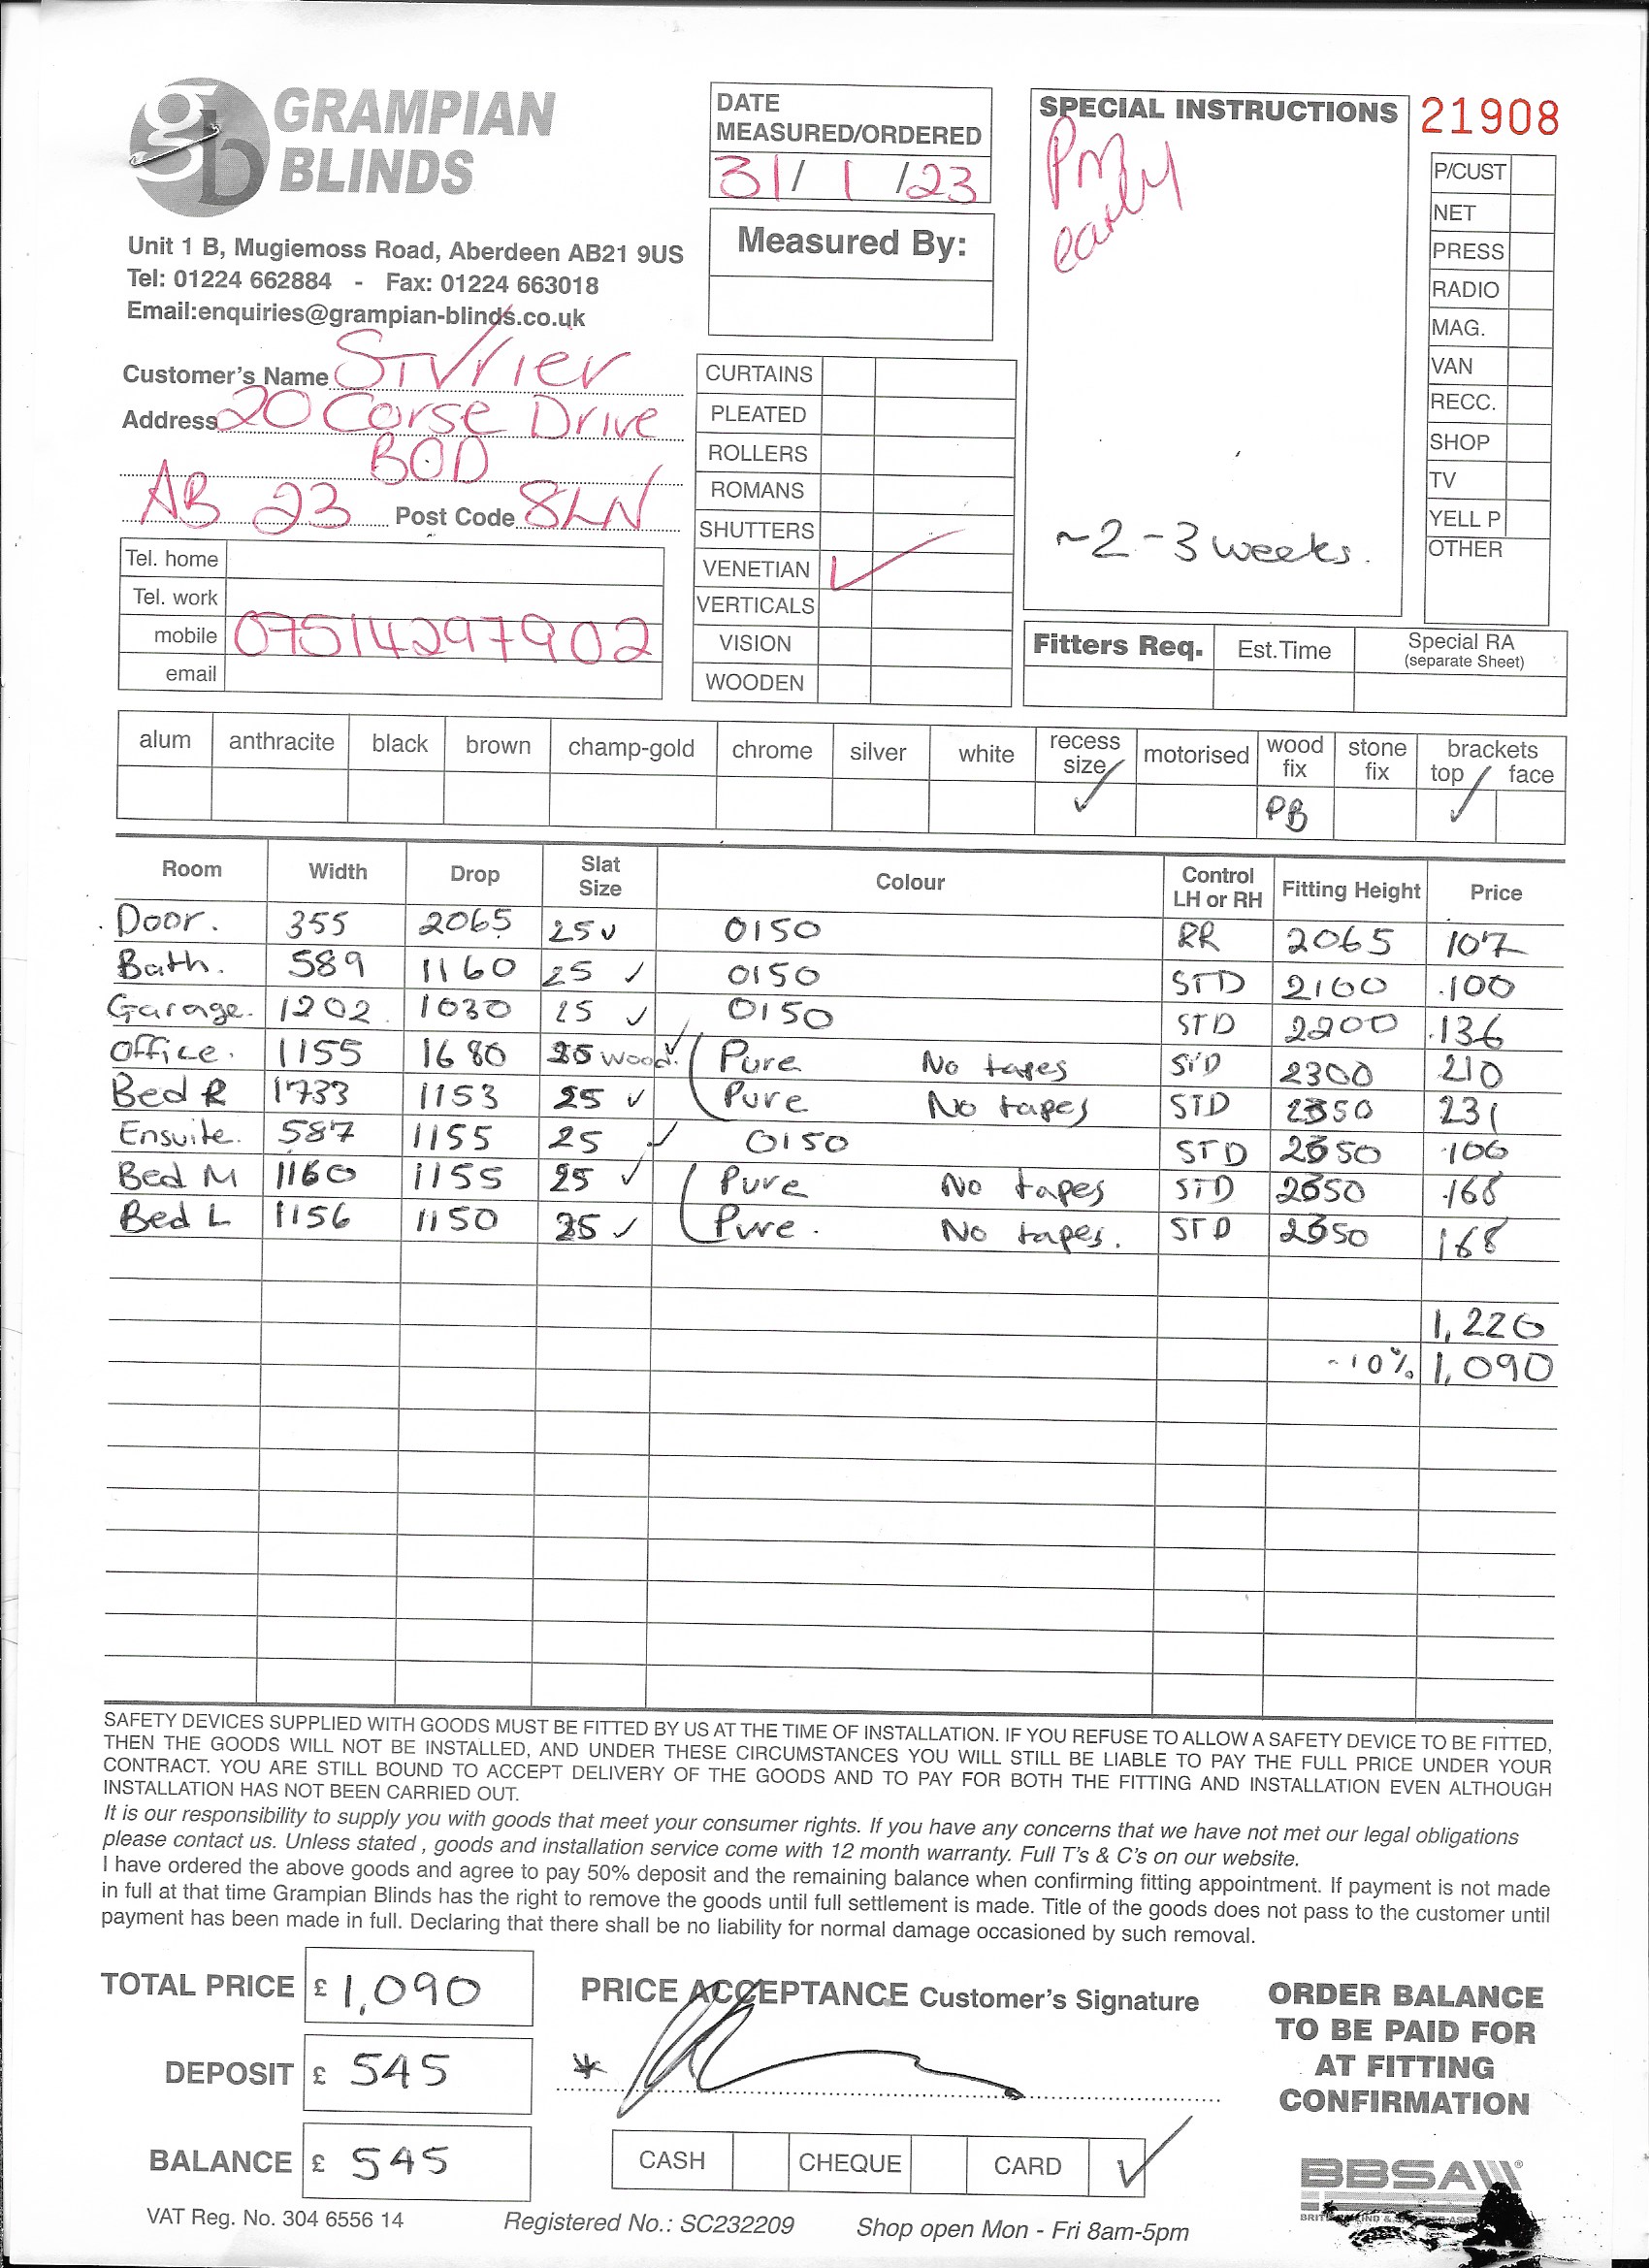 GRAMPIAN
BLINDS
Unit 1 B, Mugiemoss Road, Aberdeen AB21 9US
Tel: 01224 662884 - Fax: 01224 663018
Email:enquiries@grampian-blinds.co.uk
DATE
MEASURED/ORDERED
31/1/23
Measured By:
SPECIAL INSTRUCTIONS
PM
early
~2-3 weeks.
21908
P/CUST
NET
PRESS
RADIO
MAG.
VAN
RECC.
SHOP
TV
YELL P
OTHER
Customer's Name
Address 20 Corse Drive
BOD
AB 23 Post Code 8LN
Tel. home
Tel. work
mobile 07514297902
email
CURTAINS
PLEATED
ROLLERS
ROMANS
SHUTTERS
VENETIAN ✓
VERTICALS
VISION
WOODEN
Fitters Req. Est.Time Special RA
(separate Sheet)
alum anthracite black brown champ-gold chrome silver white recess size motorised wood fix stone fix brackets top face
✓ PB ✓
Room Width Drop Slat Size Colour Control LH or RH Fitting Height Price
Door. 355 2065 25 ✓ 0150 RR 2065 107
Bath. 589 1160 25 ✓ 0150 STD 2100 100
Garage. 1202 1030 25 ✓ 0150 STD 2200 136
Office. 1155 1680 25 Wood. ✓ Pure No tapes STD 2300 210
Bed R 1733 1153 25 ✓ Pure No tapes STD 2350 231
Ensuite. 587 1155 25 ✓ 0150 STD 2350 100
Bed M 1160 1155 25 ✓ Pure No tapes STD 2350 168
Bed L 1156 1150 25 ✓ Pure. No tapes. STD 2350 168
1,220
-10% 1,090
SAFETY DEVICES SUPPLIED WITH GOODS MUST BE FITTED BY US AT THE TIME OF INSTALLATION. IF YOU REFUSE TO ALLOW A SAFETY DEVICE TO BE FITTED,
THEN THE GOODS WILL NOT BE INSTALLED, AND UNDER THESE CIRCUMSTANCES YOU WILL STILL BE LIABLE TO PAY THE FULL PRICE UNDER YOUR
CONTRACT. YOU ARE STILL BOUND TO ACCEPT DELIVERY OF THE GOODS AND TO PAY FOR BOTH THE FITTING AND INSTALLATION EVEN ALTHOUGH
INSTALLATION HAS NOT BEEN CARRIED OUT.
It is our responsibility to supply you with goods that meet your consumer rights. If you have any concerns that we have not met our legal obligations
please contact us. Unless stated , goods and installation service come with 12 month warranty. Full T's & C's on our website.
I have ordered the above goods and agree to pay 50% deposit and the remaining balance when confirming fitting appointment. If payment is not made
in full at that time Grampian Blinds has the right to remove the goods until full settlement is made. Title of the goods does not pass to the customer until
payment has been made in full. Declaring that there shall be no liability for normal damage occasioned by such removal.
TOTAL PRICE £ 1,090
DEPOSIT £ 545
BALANCE £ 545
PRICE ACCEPTANCE Customer's Signature
*
CASH CHEQUE CARD ✓
ORDER BALANCE
TO BE PAID FOR
AT FITTING
CONFIRMATION
BBSA
VAT Reg. No. 304 6556 14 Registered No.: SC232209 Shop open Mon - Fri 8am-5pm